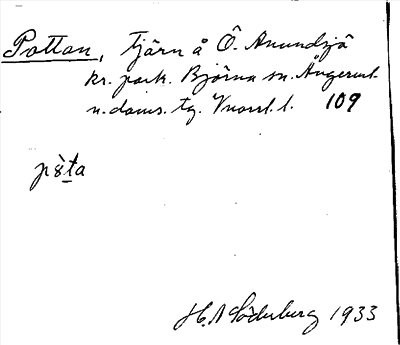 Pottan, Tjärn å Ö. Anundsjö
kr. park. Björna sn. Ångerml.
n. doms. tg. Vnorrl. l. 109
pòta
H. Söderberg 1933